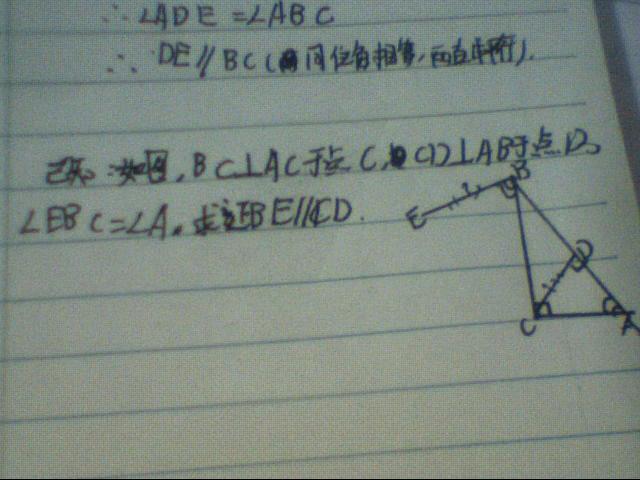 ∴ ∠ADE=∠ABC
∴ DE∥BC(同位角相等,两直线平行).
已知:如图,BC⊥AC于点C,CD⊥AB于点D,
∠EBC=∠A,求证BE∥CD.
E
B
D
C
A